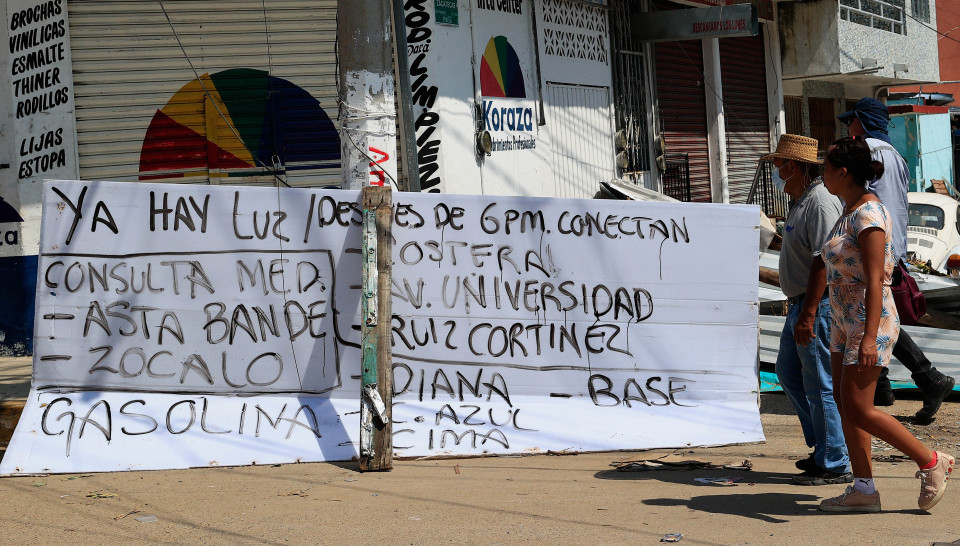 BROCHAS
VINILICAS
ESMALTE
THINER
RODILLOS
LIJAS
ESTOPA
Koraza
Ya HAY LUZ / DESPUES DE 6PM. CONECTAN
CONSULTA MED.
- ASTA BANDE
- ZOCALO
- COSTERA
- AV. UNIVERSIDAD
- RUIZ CORTINEZ
GASOLINA
- DIANA - BASE
- C. AZUL
- CIMA